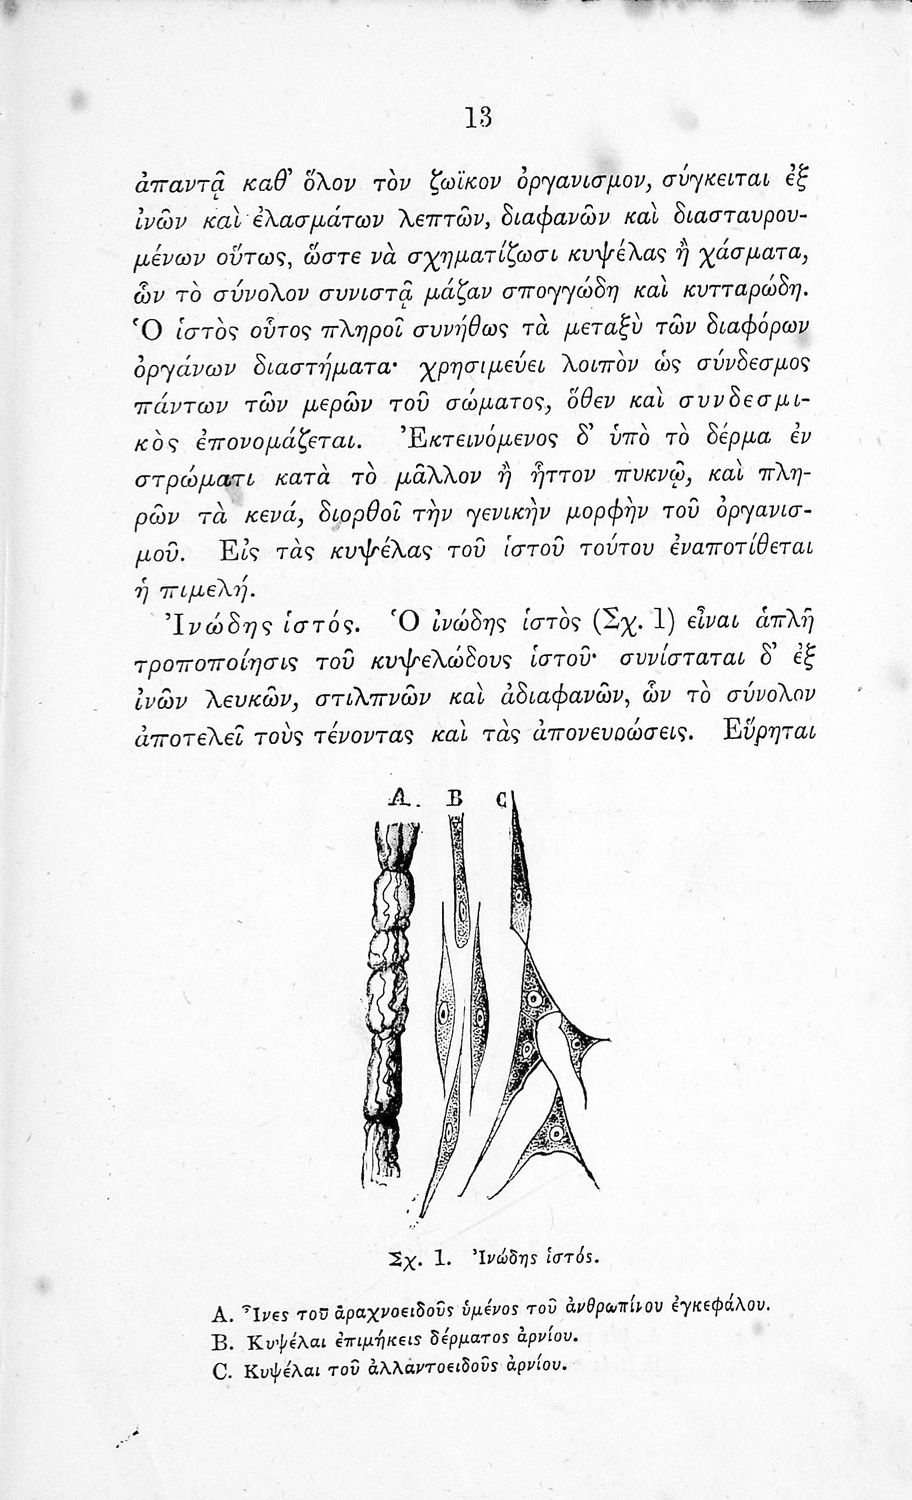 13
ἀπαντᾷ καθ’ ὅλον τὸν ζωϊκον ὀργανισμον, σύγκειται ἐξ
ἰνῶν καὶ ἐλασμάτων λεπτῶν, διαφανῶν καὶ διασταυρου-
μένων οὕτως, ὥστε νὰ σχηματίζωσι κυψέλας ἢ χάσματα,
ὧν τὸ σύνολον συνιστᾷ μάζαν σπογγώδη καὶ κυτταρώδη.
Ὁ ἱστὸς οὗτος πληροῖ συνήθως τὰ μεταξὺ τῶν διαφόρων
ὀργάνων διαστήματα· χρησιμεύει λοιπὸν ὡς σύνδεσμος
πάντων τῶν μερῶν τοῦ σώματος, ὅθεν καὶ συνδεσμι-
κὸς ἐπονομάζεται. Ἐκτεινόμενος δ’ ὑπὸ τὸ δέρμα ἐν
στρώματι κατὰ τὸ μᾶλλον ἢ ἧττον πυκνῷ, καὶ πλη-
ρῶν τὰ κενά, διορθοῖ τὴν γενικὴν μορφὴν τοῦ ὀργανισ-
μοῦ. Εἰς τὰς κυψέλας τοῦ ἱστοῦ τούτου ἐναποτίθεται
ἡ πιμελή.
Ἰνώδης ἱστός. Ὁ ἰνώδης ἱστὸς (Σχ. 1) εἶναι ἁπλῆ
τροποποίησις τοῦ κυψελώδους ἱστοῦ· συνίσταται δ’ ἐξ
ἰνῶν λευκῶν, στιλπνῶν καὶ ἀδιαφανῶν, ὧν τὸ σύνολον
ἀποτελεῖ τοὺς τένοντας καὶ τὰς ἀπονευρώσεις. Εὕρηται
A. B C
Σχ. 1. Ἰνώδης ἱστός.
A. Ἶνες τοῦ ἀραχνοειδοῦς ὑμένος τοῦ ἀνθρωπίνου ἐγκεφάλου.
B. Κυψέλαι ἐπιμήκεις δέρματος ἀρνίου.
C. Κυψέλαι τοῦ ἀλλαντοειδοῦς ἀρνίου.